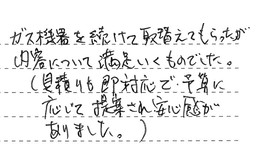 ガス機器を続けて取替えてもらったが
内容について満足いくものでした。
(見積りも即対応で予算に
応じて提案され安心感が
ありました。)